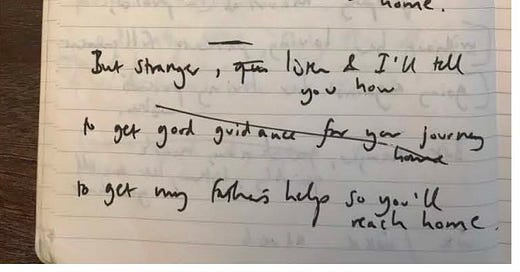 home.
But stranger, listen & I'll tell
you how
to get good guidance for your journey
home
to get my father's help so you'll
reach home.